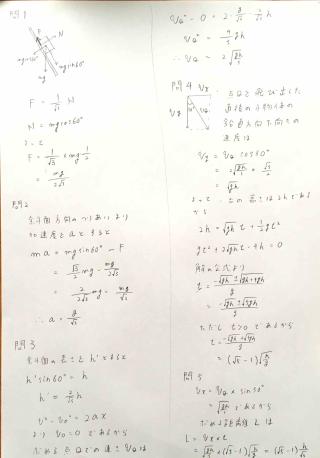 問1
F N
mgcos60° mgsin60°
mg
F = 1/√3 N
N = mgcos60°
よって
F = 1/√3 × mg・1/2
= mg/2√3
問2
斜面方向のつりあいより
加速度をaとすると
ma = mgsin60° - F
= √3/2 mg - mg/2√3
= 3/2√3 mg - mg/2√3
∴ a = g/√3
問3
斜面の長さを h' とすると
h'sin60° = h
h' = 2/√3 h
v² - v₀² = 2ax
より v₀ = 0 であるから
求める点Qでの速さ vQは
vQ² - 0 = 2・g/√3・2/√3 h
vQ² = 4/3 gh
∴ vQ = 2√(gh/3)
問4 vx
vy
点Qで飛び出した
直後の小物体の
鉛直方向下向きの
速度は
vy = vQ cos30°
= 2√(gh/3) × √3/2
= √gh
よって 高さは2hである
から
2h = √gh t + 1/2 gt²
gt² + 2√gh t - 4h = 0
解の公式より
t = (-√gh ± √(gh+4gh))/g
= (-√gh ± √5gh)/g
ただし t>0 であるから
t = (-√gh + √5gh)/g
= (√5 - 1)√(h/g)
問5
vx = vQ × sin30°
= √(gh/3) であるから
求める距離 L は
L = vx × t
= √(gh/3) × (√5-1)√(h/g) = (√5-1) h/√3